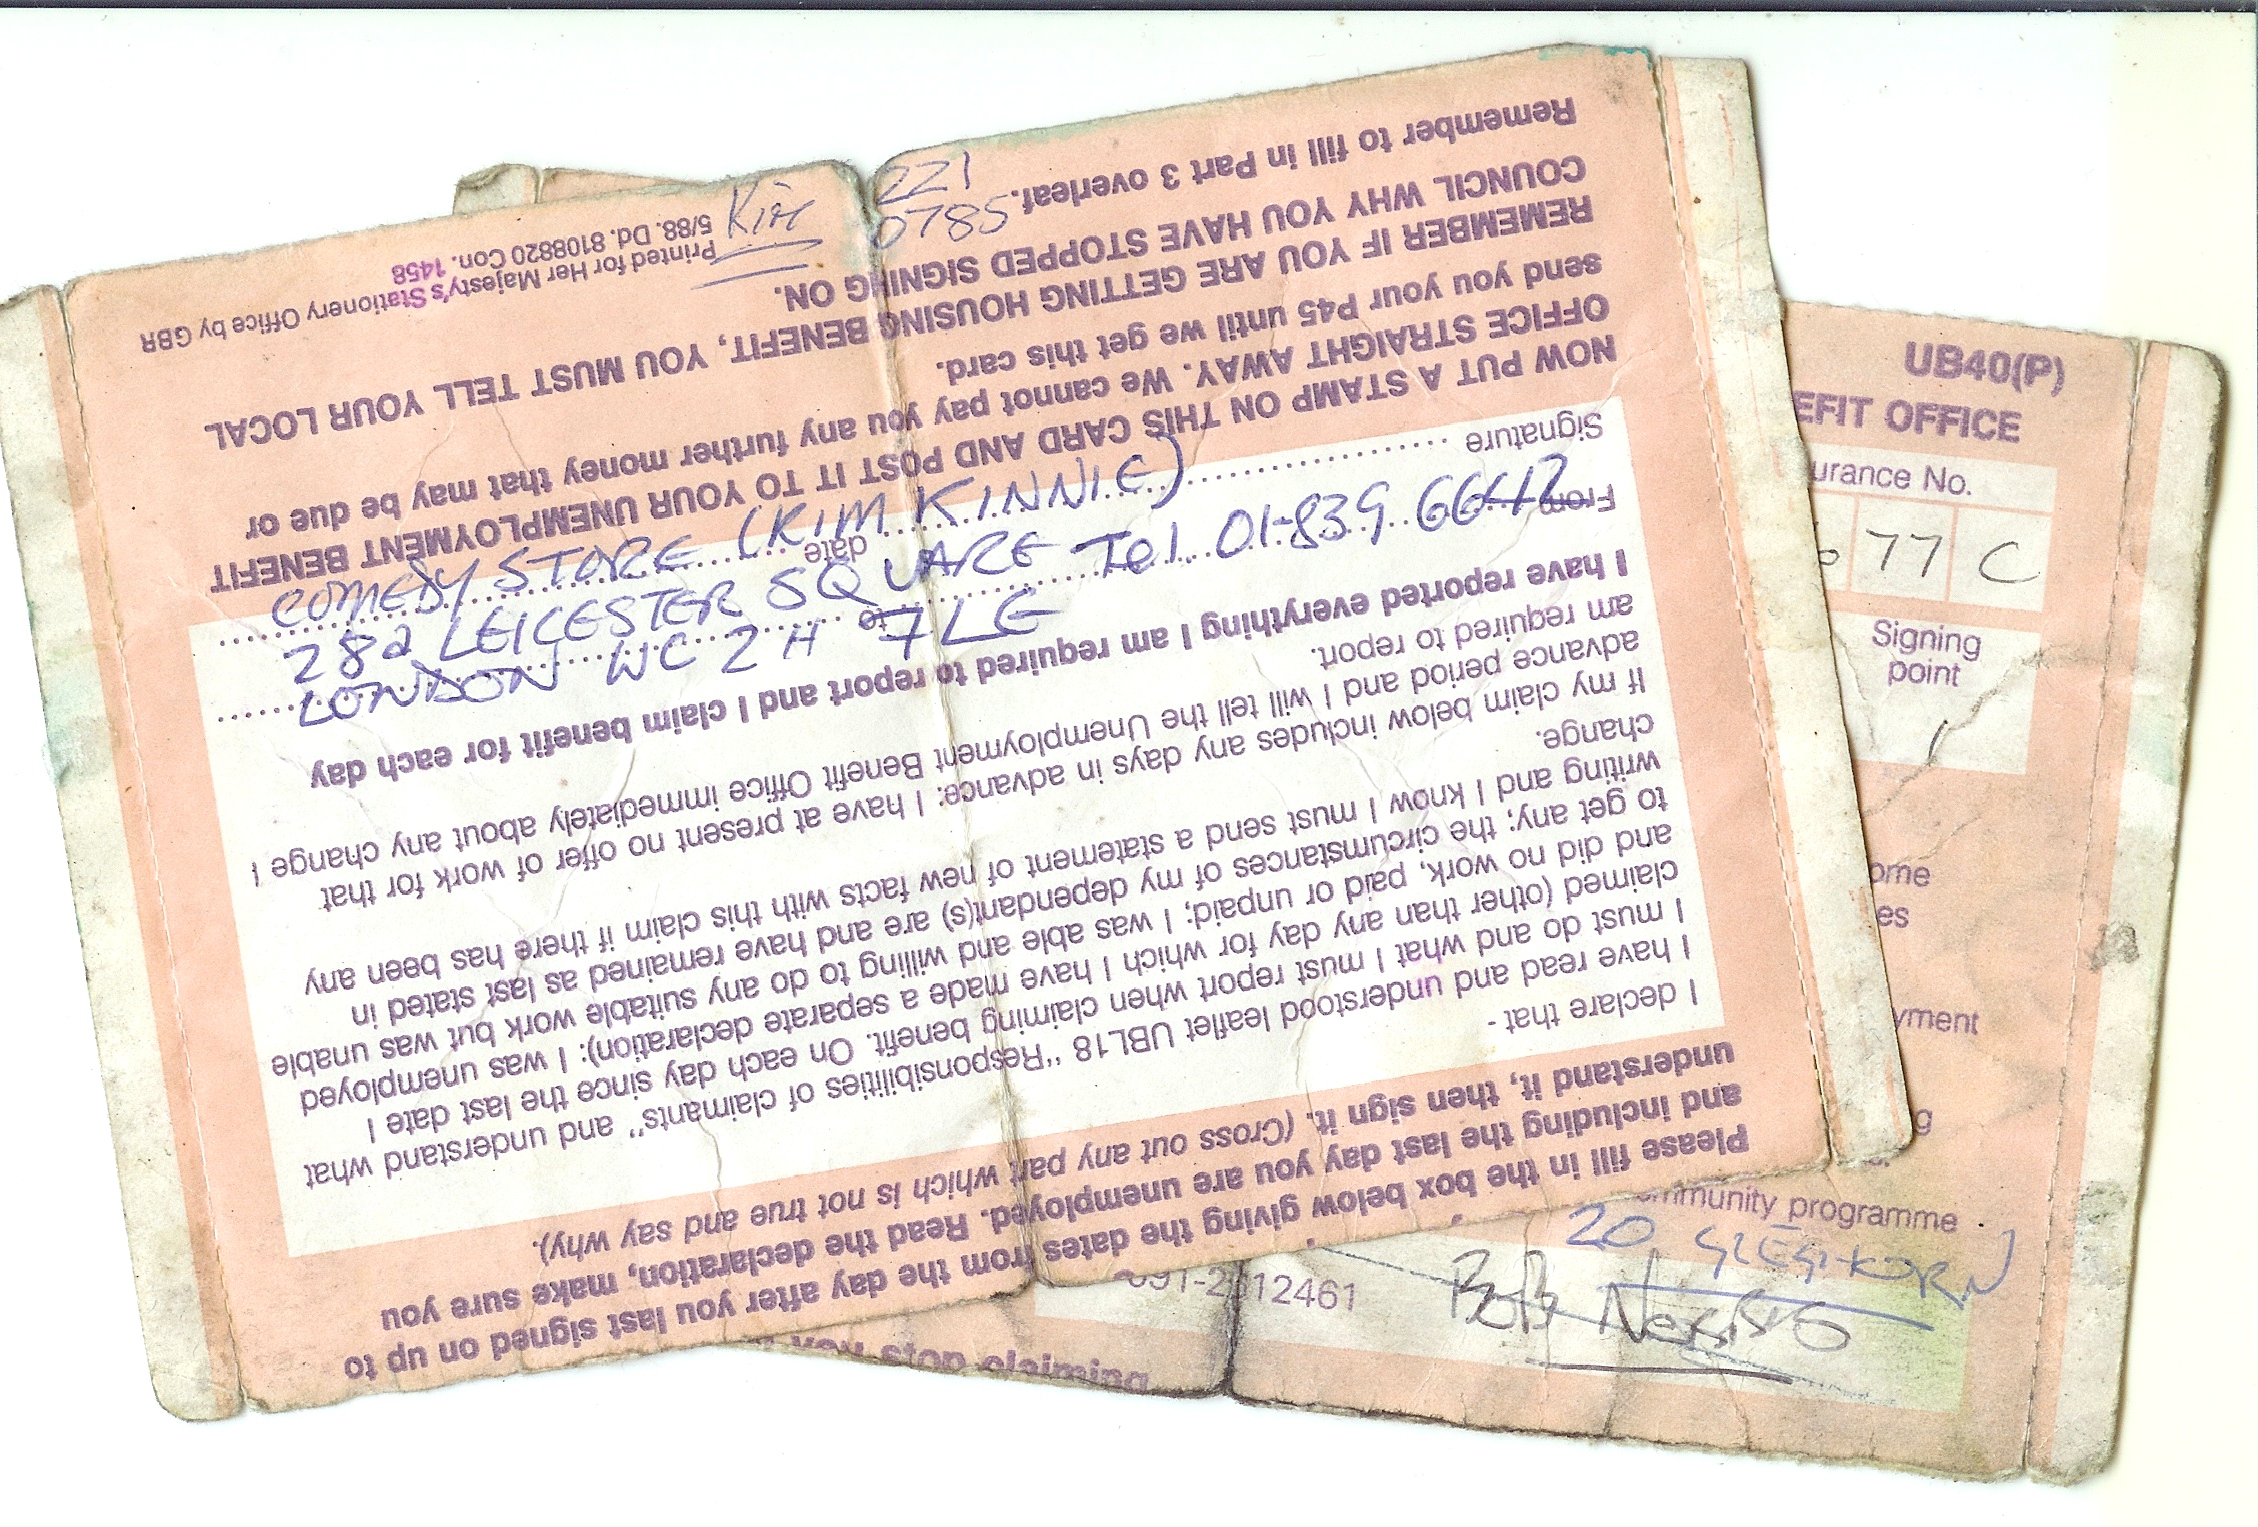 Please fill in the box below giving the dates from the day after you last signed on up to
and including the last day you are unemployed. Read the declaration, make sure you
understand it, then sign it. (Cross out any part which is not true and say why).
I declare that -
I have read and understood leaflet UBL18 "Responsibilities of claimants" and understand what
I must do and what I must report when claiming benefit. On each day since the last date I
claimed (other than any day for which I have made a separate declaration): I was unemployed
and did no work, paid or unpaid; I was able and willing to do any suitable work but was unable
to get any; the circumstances of my dependant(s) are and have remained as last stated in
writing and I know I must send a statement of new facts with this claim if there has been any
change.
If my claim below includes any days in advance: I have at present no offer of work for that
advance period and I will tell the Unemployment Benefit Office immediately about any change I
am required to report.
I have reported everything I am required to report and I claim benefit for each day
From to
Signature date
NOW PUT A STAMP ON THIS CARD AND POST IT TO YOUR UNEMPLOYMENT BENEFIT
OFFICE STRAIGHT AWAY. We cannot pay you any further money that may be due or
send you your P45 until we get this card.
REMEMBER IF YOU ARE GETTING HOUSING BENEFIT, YOU MUST TELL YOUR LOCAL
COUNCIL WHY YOU HAVE STOPPED SIGNING ON.
Remember to fill in Part 3 overleaf.
Printed for Her Majesty's Stationery Office by GBR
5/88. Dd. 8108820 Con. 1458
Kim
221
0785
COMEDY STORE (KIM KINNIE)
28a LEICESTER SQUARE Tel 01-839 6642
LONDON WC2H 7LE
UB40(P)
EFIT OFFICE
urance No.
77 C
Signing
point
ome
es
yment
g
mmunity programme
20
091-2612461